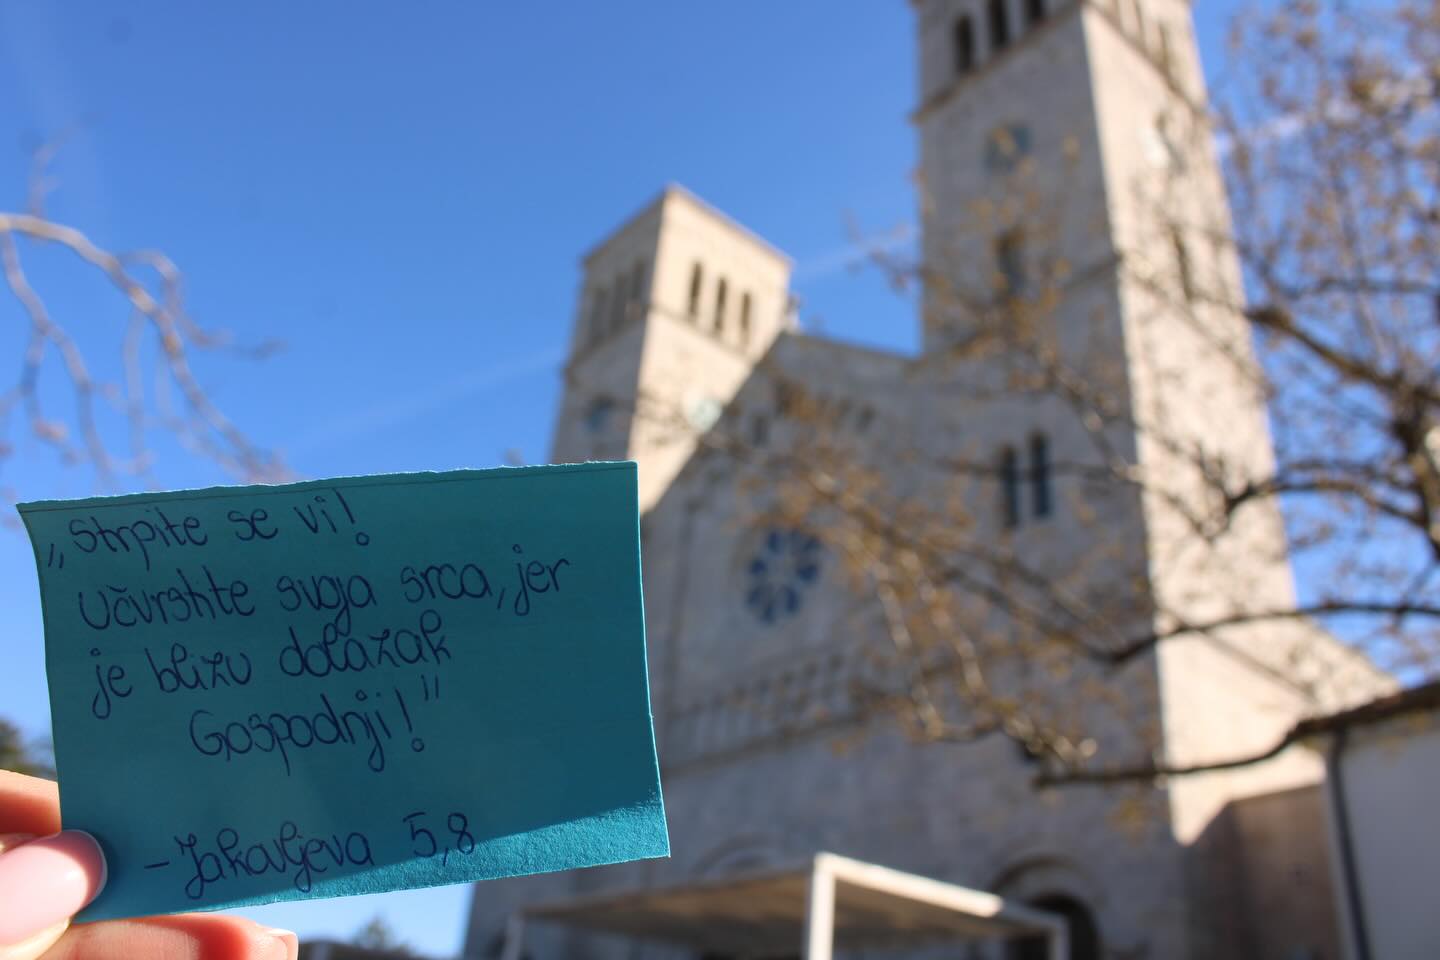 „Strpite se vi!
Učvrstite svoja srca, jer
je blizu dolazak
Gospodnji!"
- Jakovljeva 5,8